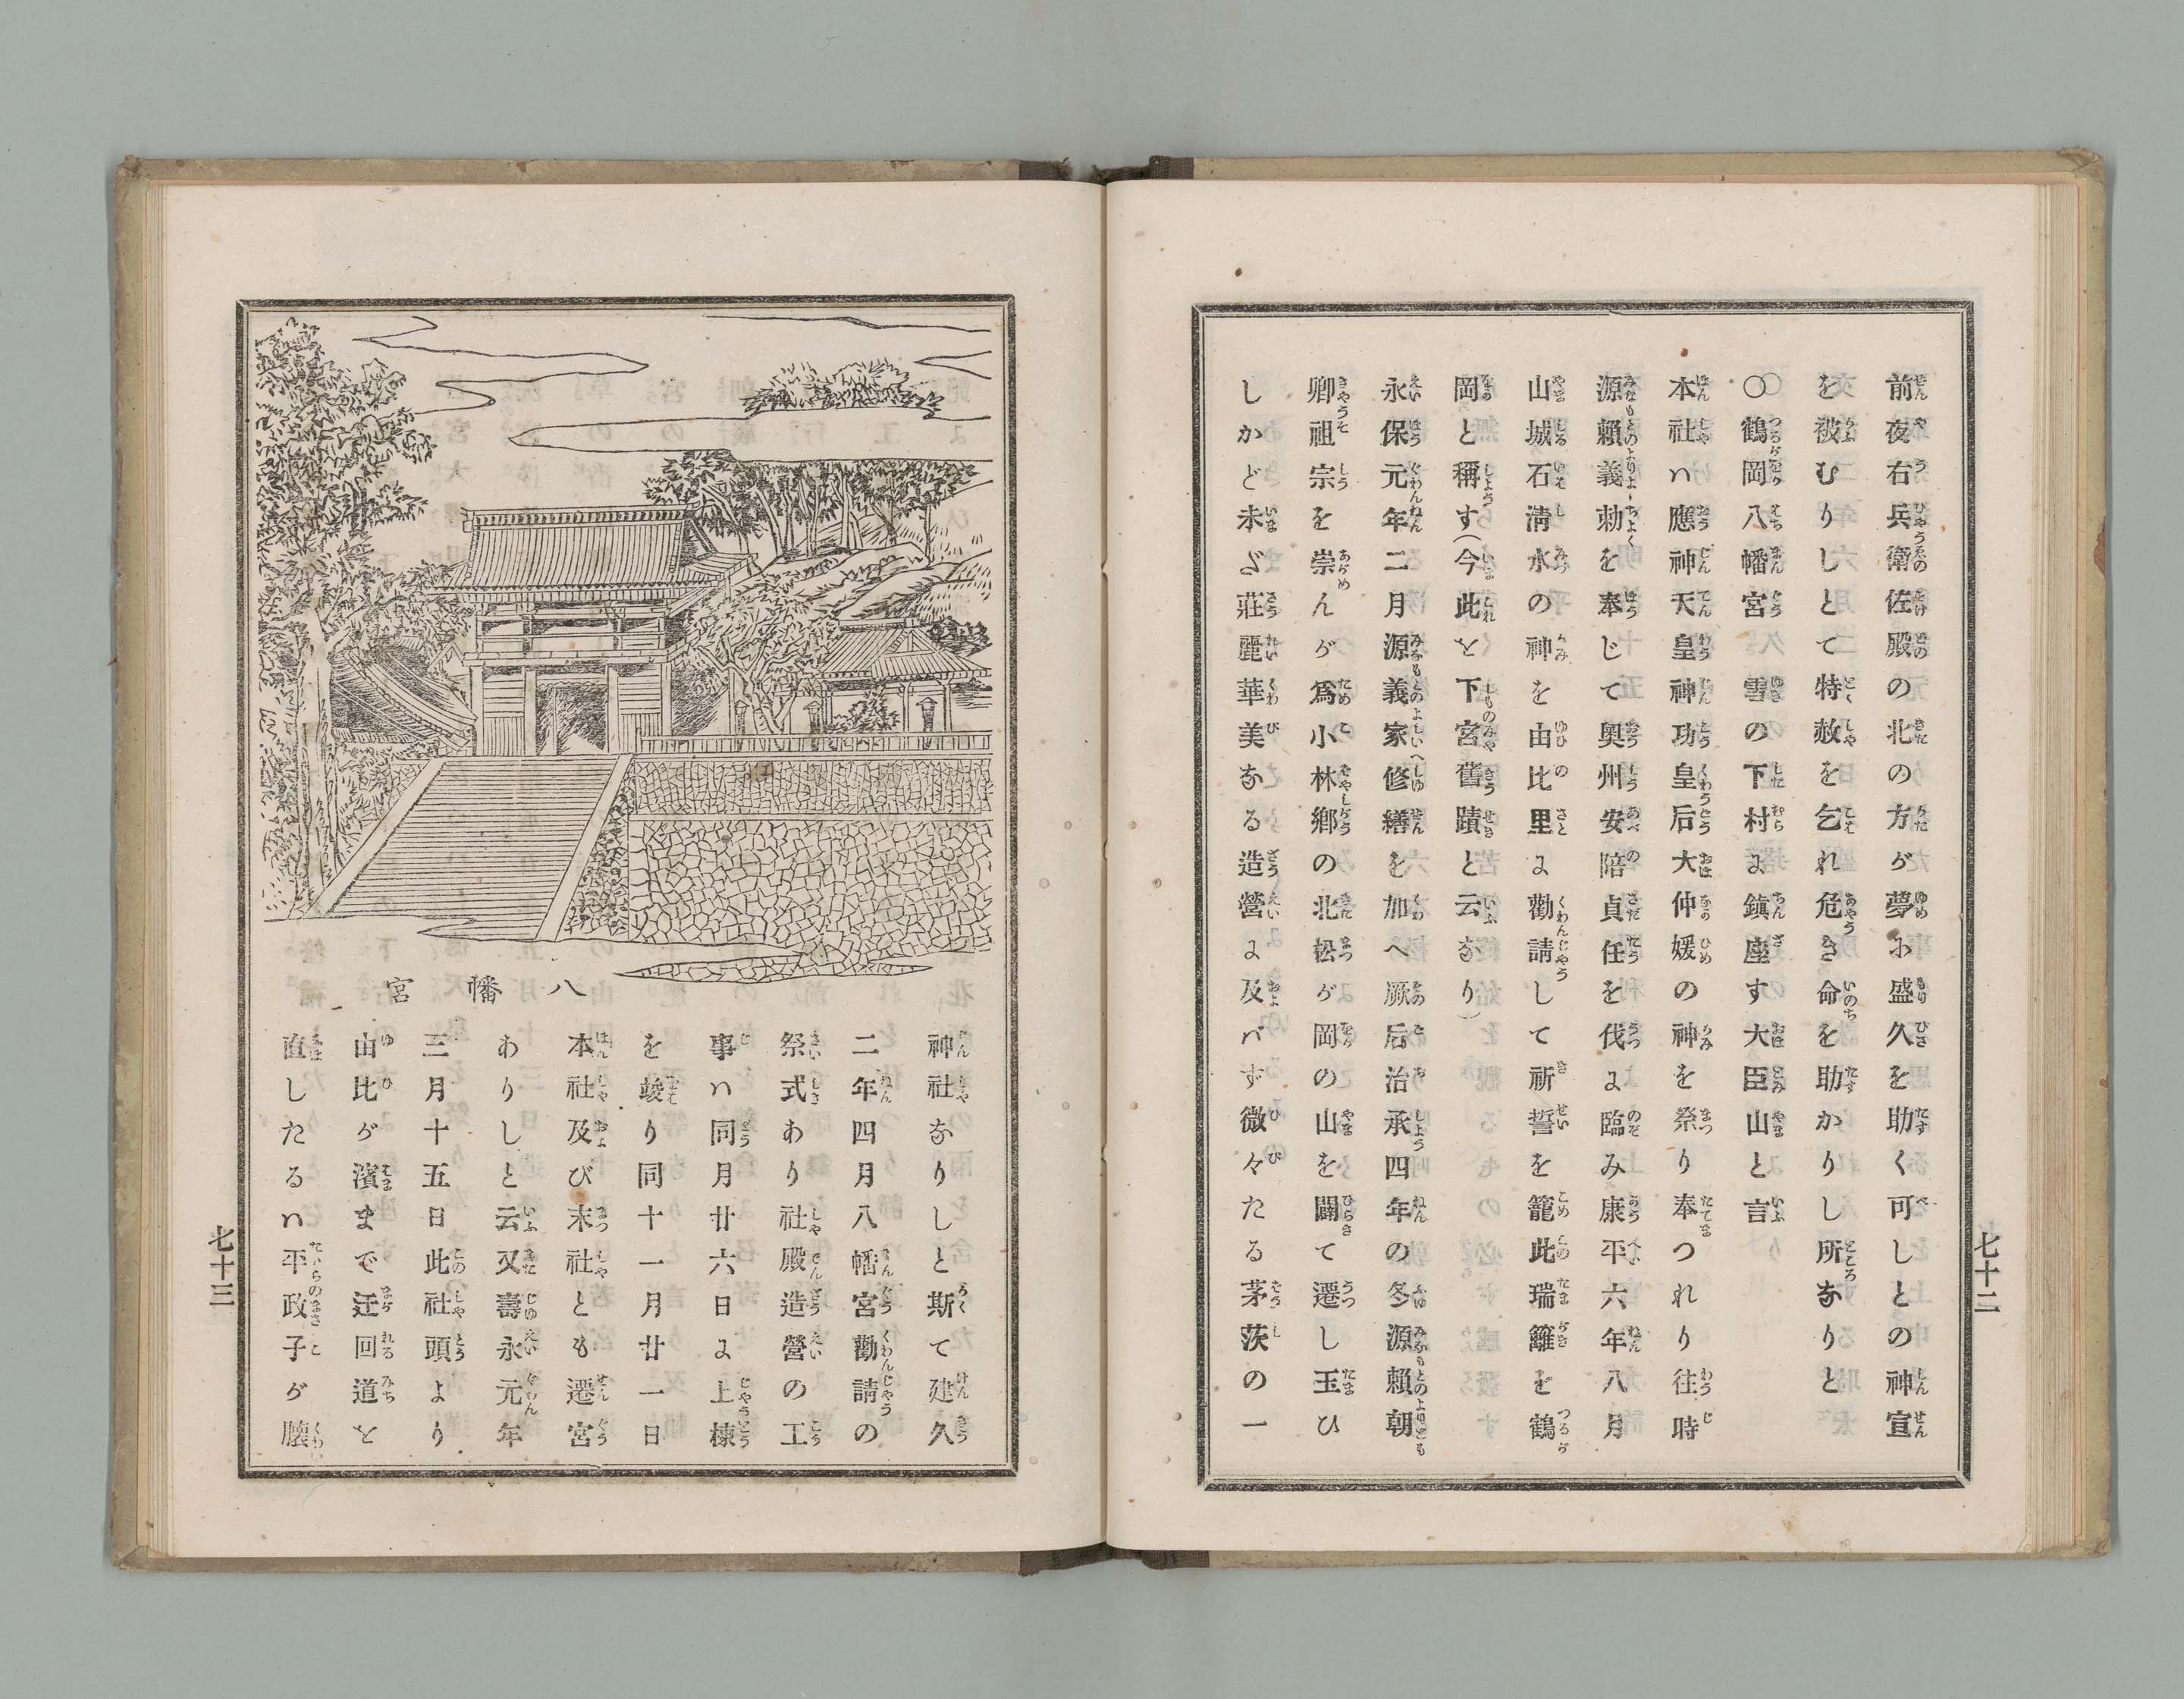 前夜右兵衛佐殿の北の方が夢に盛久を助く可しとの神宣
を被むりしとて特赦を乞れ危き命を助かりし所なりと
〇鶴岡八幡宮 雪の下村に鎮座す大臣山と言
本社ハ應神天皇神功皇后大仲媛の神を祭り奉つれり往時
源賴義勅を奉じて奧州安陪貞任を伐に臨み康平六年八月
山城石淸水の神を由比里に勸請して祈誓を籠此瑞籬を鶴
岡と稱す(今此を下宮舊蹟と云なり)
永保元年二月源義家修繕を加へ厥后治承四年の冬源賴朝
卿祖宗を崇んが爲小林鄉の北松が岡の山を闢て遷し玉ひ
しかど未ざ莊麗華美なる造營に及バず微々たる茅茨の一
七十二
八幡宮
神社なりしと斯て建久
二年四月八幡宮勸請の
祭式あり社殿造營の工
事ハ同月廿六日に上棟
を竣り同十一月廿一日
本社及び末社とも遷宮
ありしと云又壽永元年
三月十五日此社頭より
由比が濱まで迂回道を
直したるハ平政子が懷
七十三